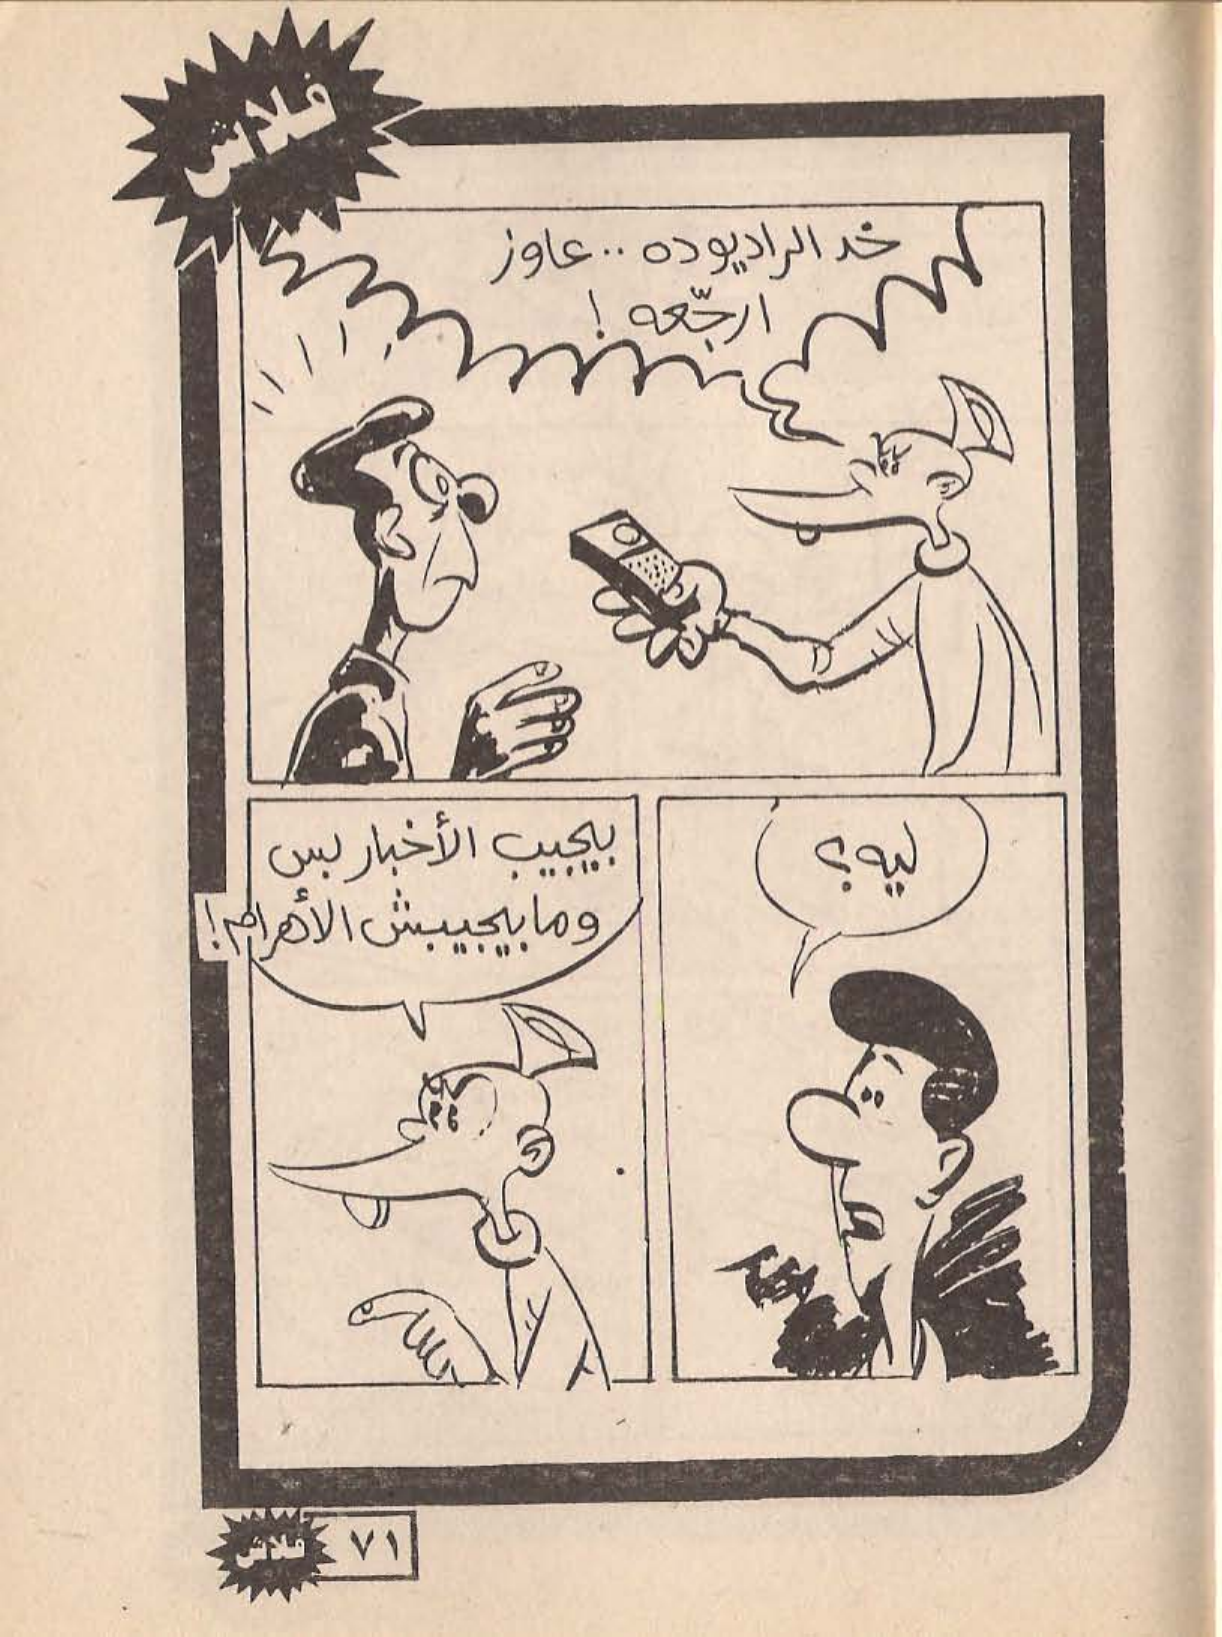 فلاش
خد الراديو ده .. عاوز
ارجّعه !
ليه ؟
بيجيب الأخبار بس
وما بيجيبش الأهرام !
فلاش ٧١